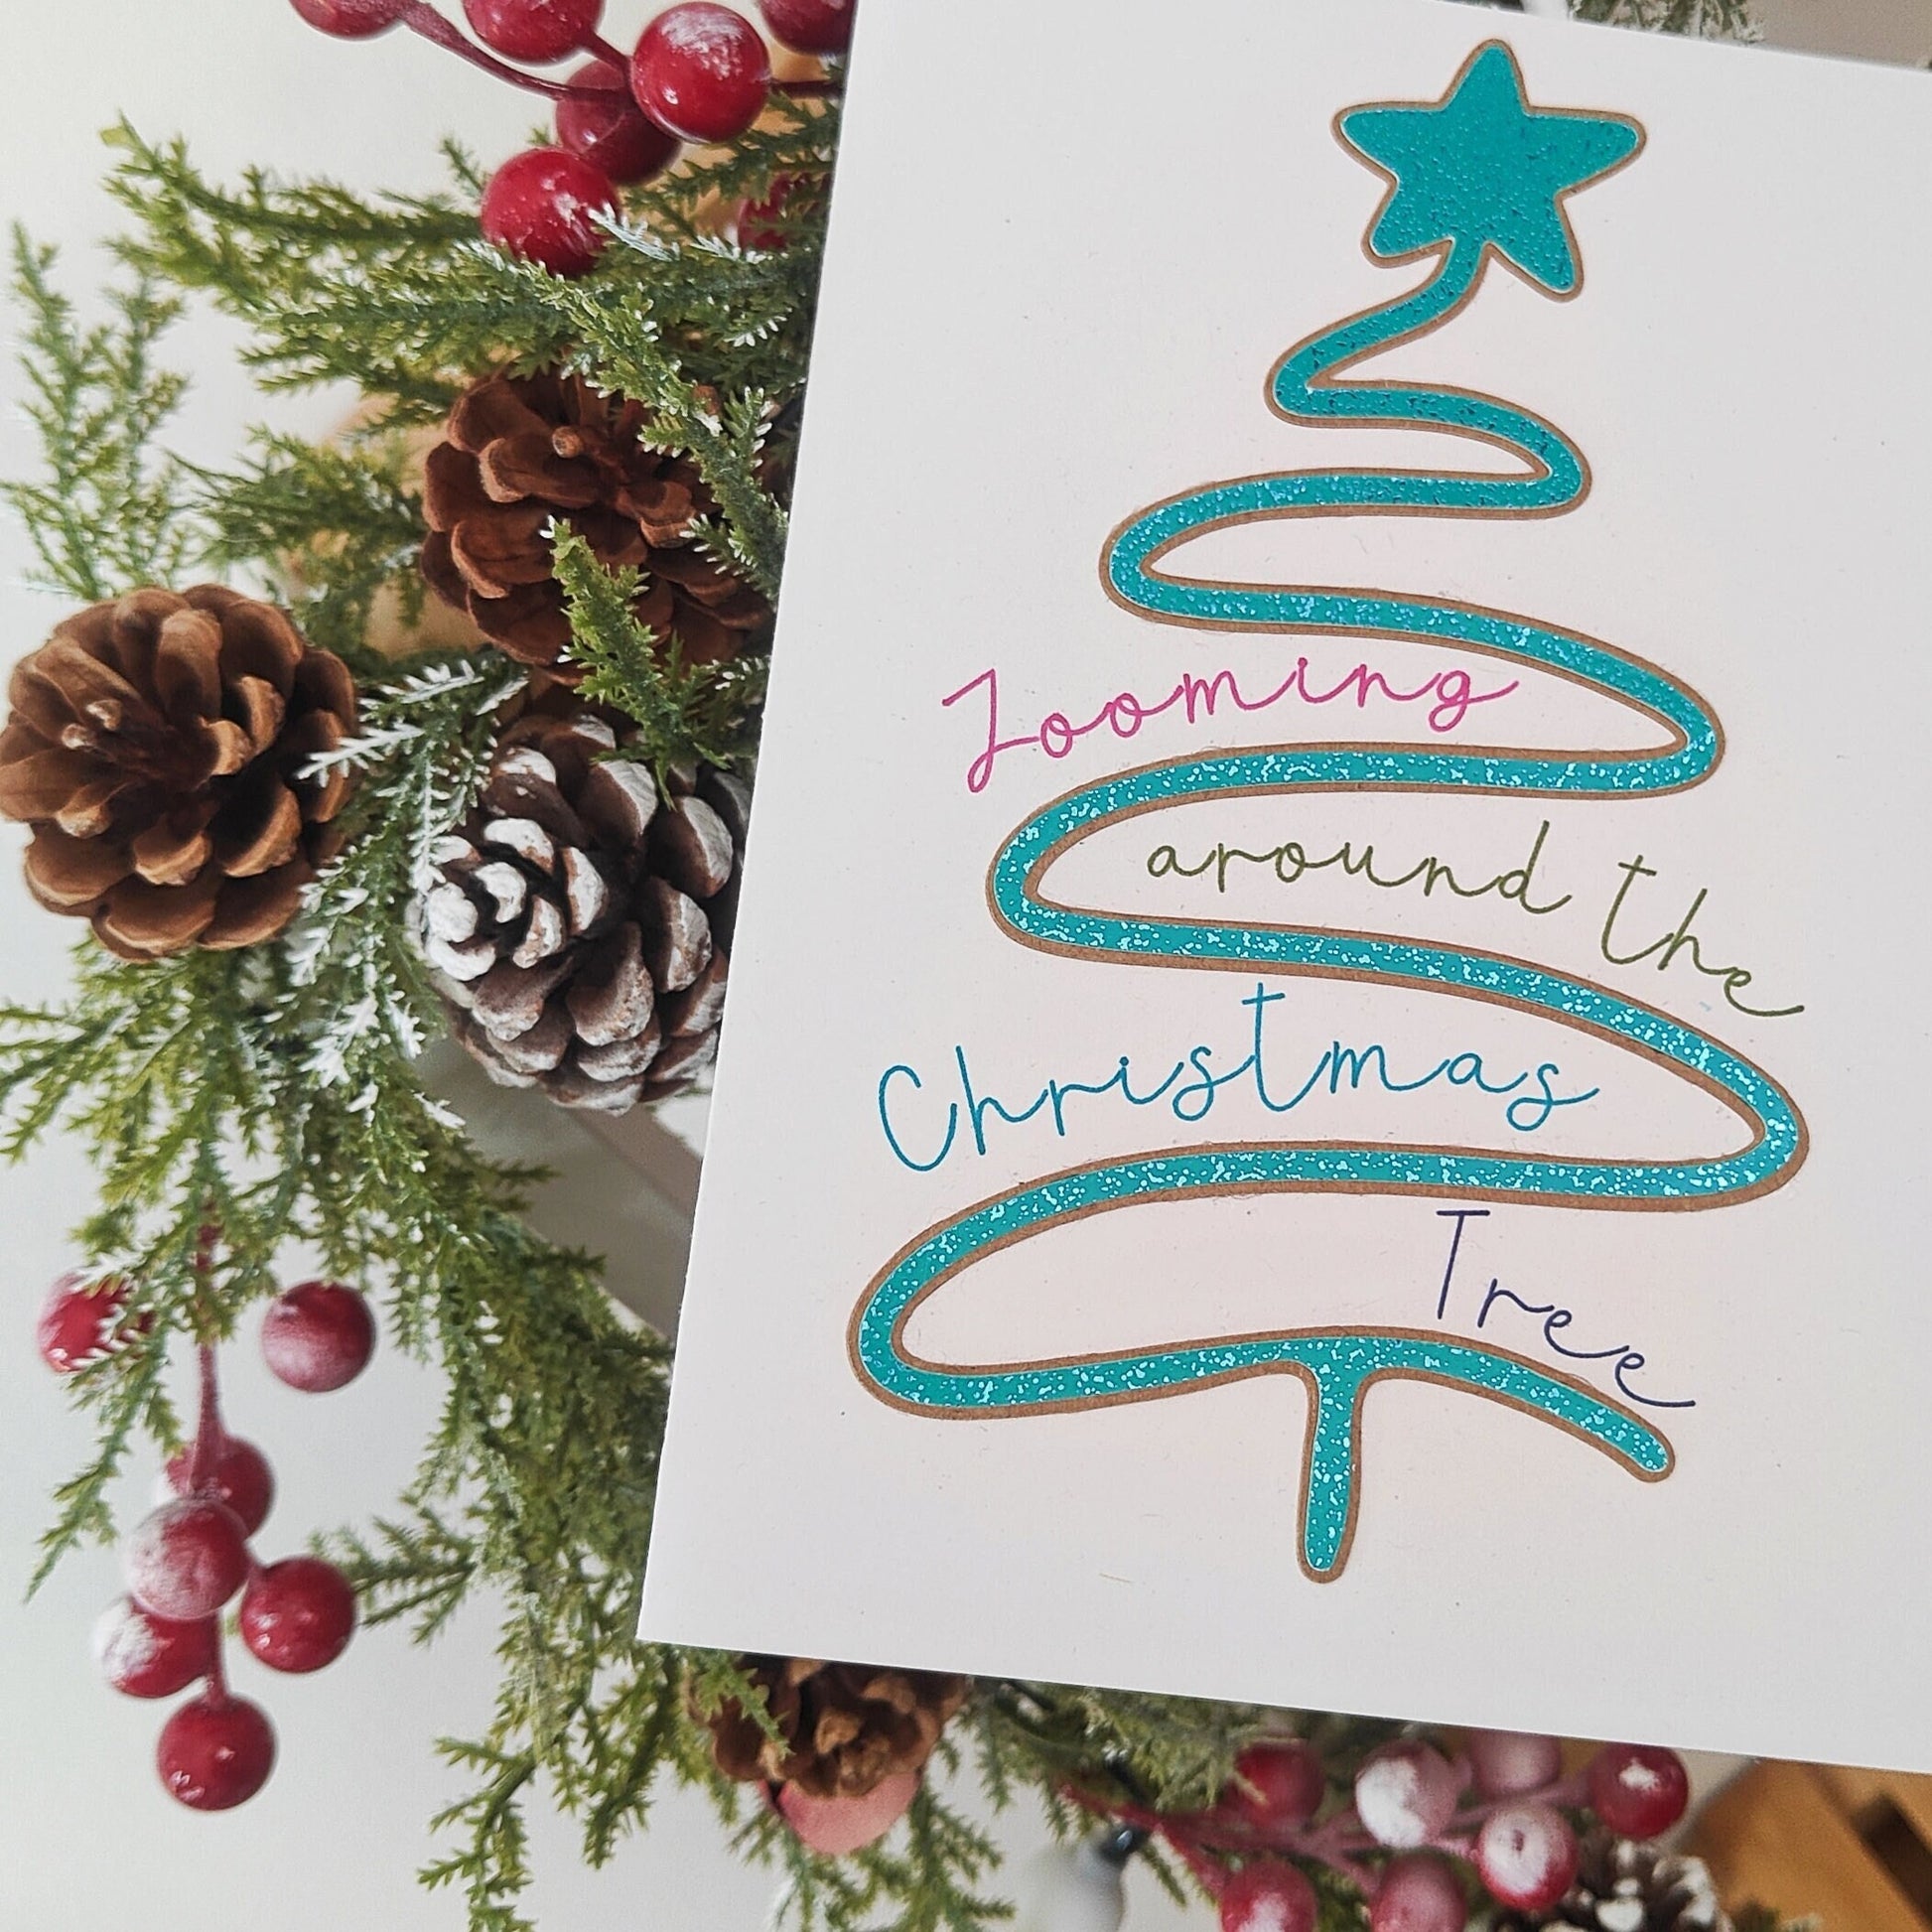 Zooming
around the
Christmas
Tree